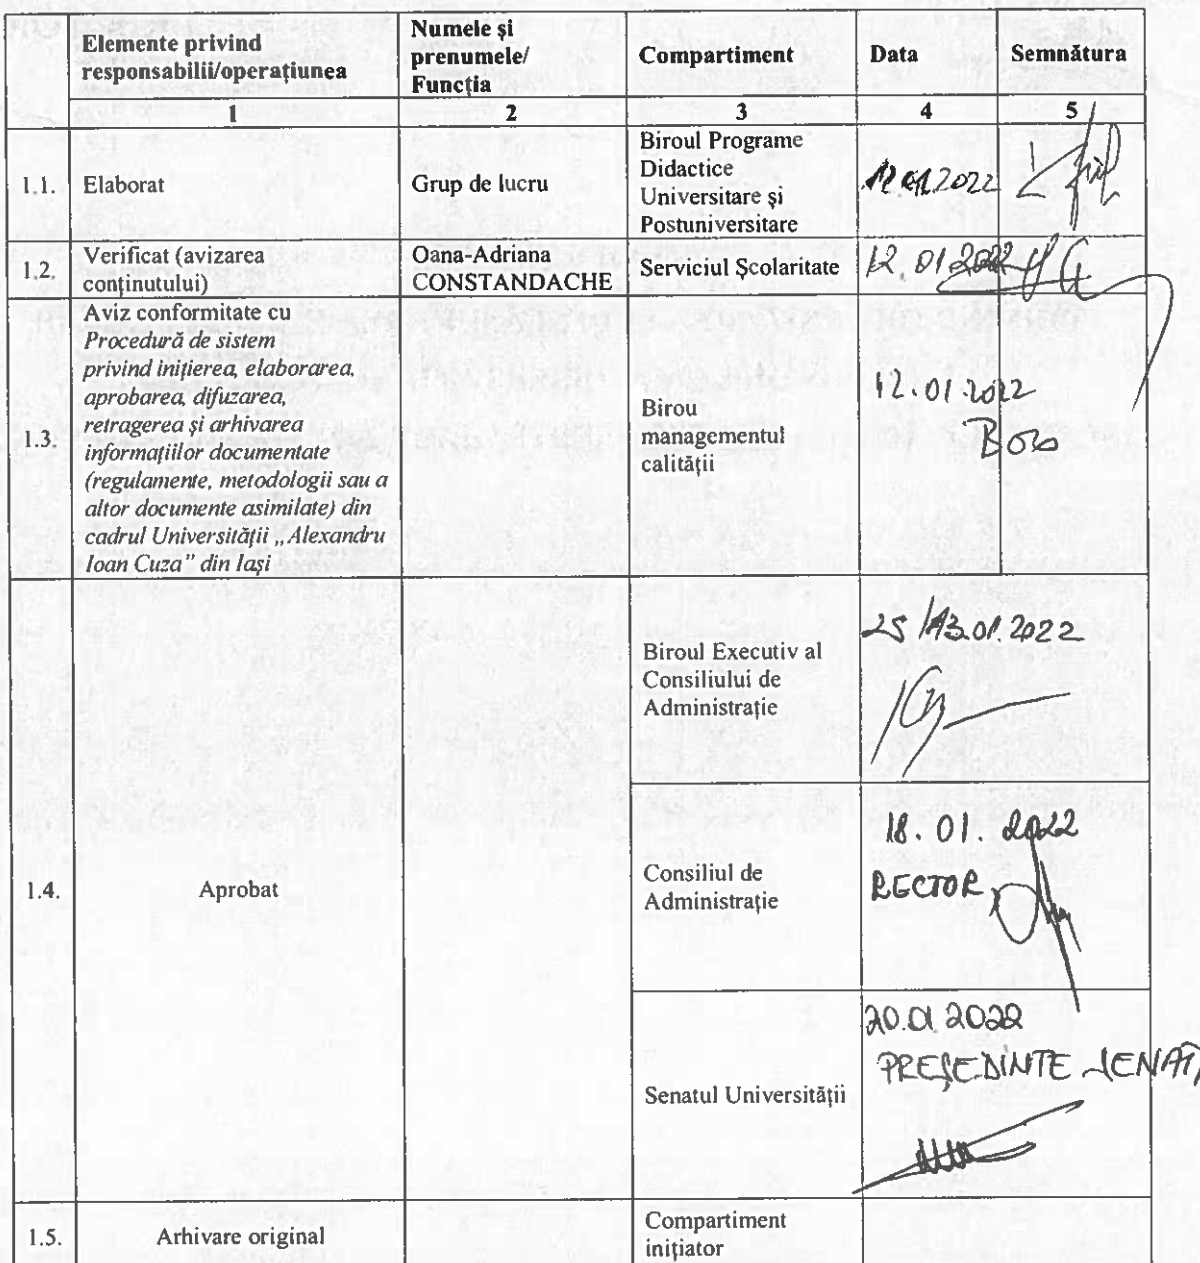 Elemente privind
responsabilii/operațiunea
Numele și
prenumele/
Funcția
Compartiment
Data
Semnătura
1
2
3
4
5
1.1.
Elaborat
Grup de lucru
Biroul Programe
Didactice
Universitare și
Postuniversitare
1.2.
Verificat (avizarea
conținutului)
Oana-Adriana
CONSTANDACHE
Serviciul Școlaritate
12.01.2022
1.3.
Aviz conformitate cu
Procedură de sistem
privind inițierea, elaborarea,
aprobarea, difuzarea,
retragerea și arhivarea
informațiilor documentate
(regulamente, metodologii sau a
altor documente asimilate) din
cadrul Universității „Alexandru
Ioan Cuza" din Iași
Birou
managementul
calității
12.01.2022
1.4.
Aprobat
Biroul Executiv al
Consiliului de
Administrație
25/13.01.2022
Consiliul de
Administrație
18.01.2022
RECTOR
Senatul Universității
20.01.2022
PREȘEDINTE SENAT,
1.5.
Arhivare original
Compartiment
inițiator